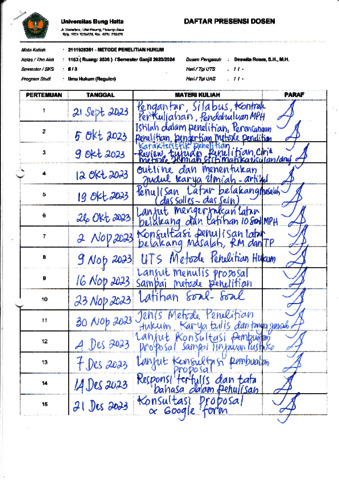 Universitas Bung Hatta
DAFTAR PRESENSI DOSEN
Mata Kuliah : 2111928361 - METODE PENELITIAN HUKUM
Kelas / Thn Akd : 1163 ( Ruang: 2036 ) / Semester Ganjil 2023/2024
Dosen Pengasuh : Deswita Rosra, S.H., M.H.
Semester / SKS : 5 / 3
Hari / Tgl UTS : / / -
Program Studi : Ilmu Hukum (Reguler)
Hari / Tgl UAS : / / -
PERTEMUAN TANGGAL MATERI KULIAH PARAF
1 21 Sept 2023 Pengantar, Silabus, Kontrak
Perkuliahan, Pendahuluan MPH
2 5 Okt 2023 Istilah dalam penelitian, Perencanaan
Penelitian, pengertian metode penelitian
3 9 Okt 2023 Karakteristik penelitian
Review, tujuan penelitian, Ciri2
4 12 Okt 2023 Outline dan menentukan
judul karya ilmiah - artikel
5 19 Okt 2023 Penulisan Latar belakang masalah
(das sollen - das sein)
6 26 Okt 2023 Lanjut mengerjakan latar
belakang dan latihan 10 soal MPH
7 2 Nop 2023 Konsultasi penulisan latar
belakang Masalah, RM dan TP
8 9 Nop 2023 UTS Metode Penelitian Hukum
9 16 Nop 2023 Lanjut menulis proposal
sampai metode penelitian
10 23 Nop 2023 Latihan Soal-Soal
11 30 Nop 2023 Jenis Metode Penelitian
Hukum, Karya tulis dan
12 4 Des 2023 Lanjut Konsultasi pembuatan
proposal sampai tinjauan pustaka
13 7 Des 2023 Lanjut Konsultasi pembuatan
proposal
14 14 Des 2023 Responsi tertulis dan tata
bahasa dalam penulisan
15 21 Des 2023 Konsultasi Proposal
& Google form